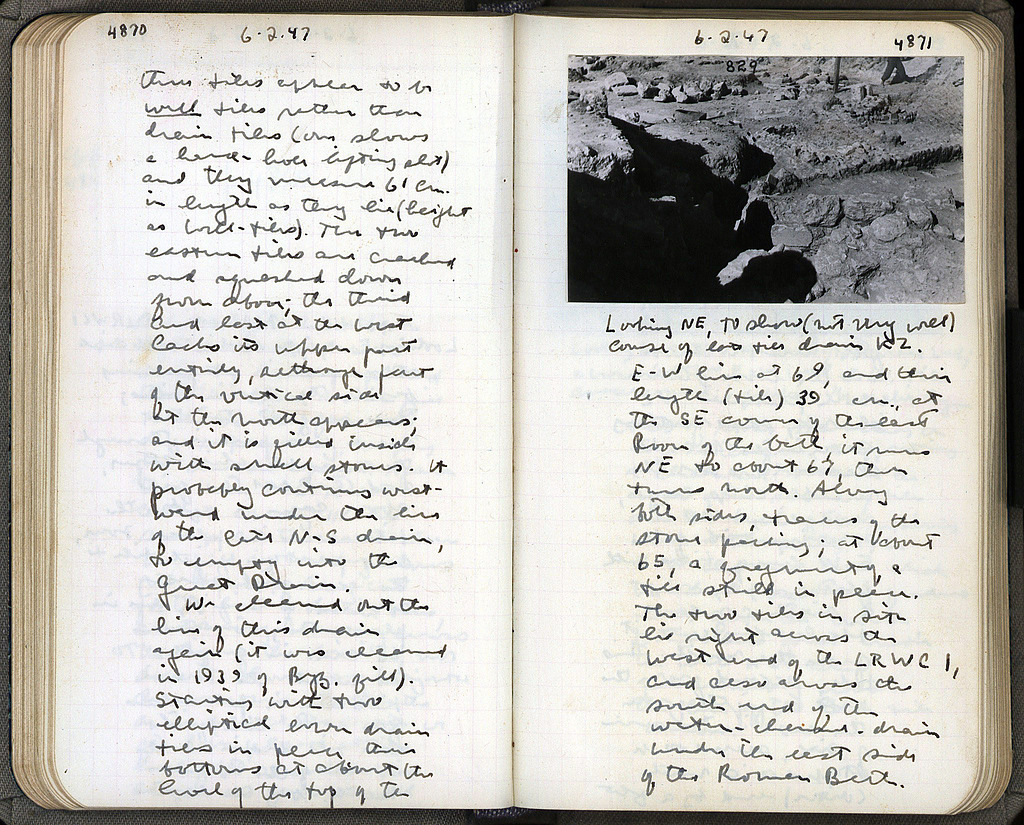 4870
6-2-47
these tiles appear to be
well tiles rather than
drain tiles (one shows
a hand-hole lifting slot)
and they measure 61 cm.
in length as they lie (height
as well-tiles). The two
eastern tiles are cracked
and squashed down
from above; the third
and last at the west
lacks its upper part
entirely, although part
of the vertical side
at the north appears;
and it is filled inside
with small stones. It
probably continues west-
ward under the line
of the late N-S drain,
to empty into the
Great Drain.
We cleaned out the
line of this drain
again (it was cleaned
in 1939 of Byz. fill).
Starting with two
elliptical lower drain
tiles in place their
bottoms at about the
level of the top of the
6-2-47
4871
829
Looking NE, to show (not very well)
course of late tiles drain K2.
E-W line at 69, and their
length (tiles) 39 cm., at
the SE corner of the east
Room of the bath, it runs
NE to about 67, then
turns north. Along
both sides, traces of the
stone packing; at about
65, a fragment of a
tile still in place.
The two tiles in situ
lie right across the
west end of the LRWC 1,
and also across the
south end of the
water-channel-drain
under the east side
of the Roman Bath.